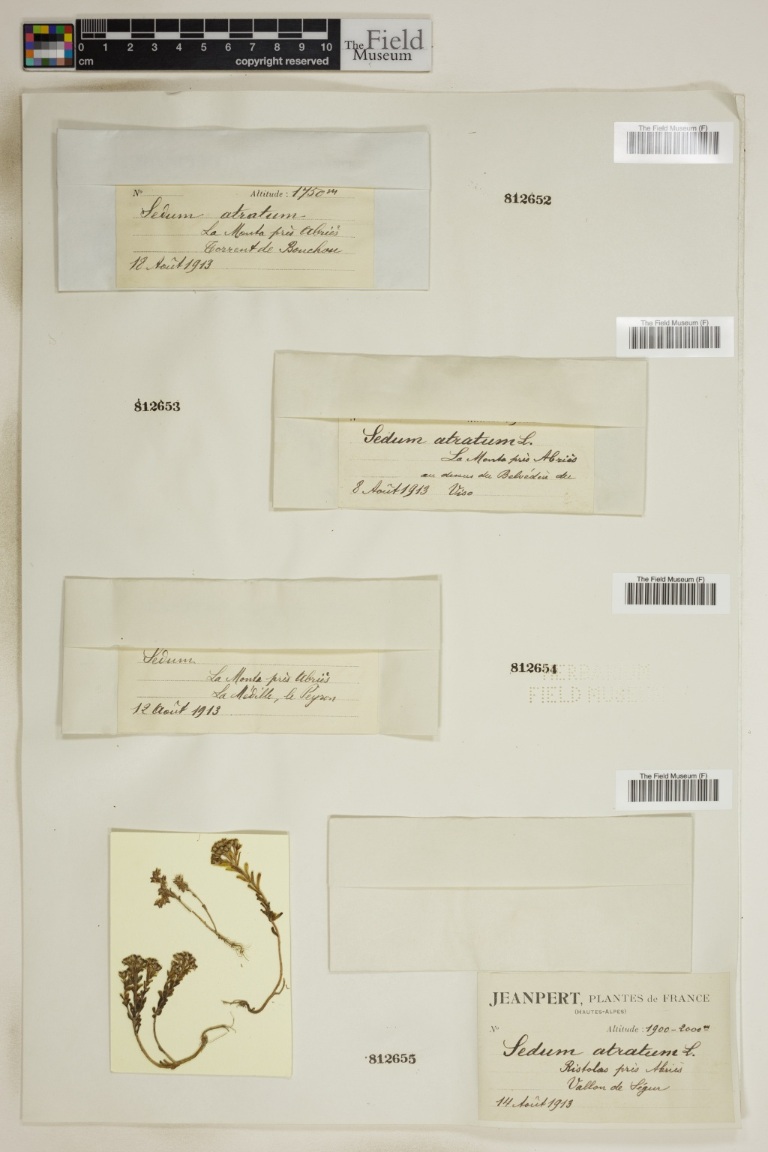 0 1 2 3 4 5 6 7 8 9 10
cm copyright reserved
The Field Museum
The Field Museum (F)
812652
Nº Altitude : 1750 m
Sedum atratum
La Monta près Abriès
Torrent de Bouchouse
12 Août 1913
The Field Museum (F)
812653
Sedum atratum L.
La Monta près Abriès
au dessus du Belvédère du
8 Août 1913 Viso
The Field Museum (F)
Sedum
La Monta près Abriès
La Médille, le Peyron
12 Août 1913
812654
HERBARIUM
FIELD MUSEUM
The Field Museum (F)
812655
JEANPERT, PLANTES de FRANCE
(HAUTES-ALPES)
Nº Altitude : 1900-2000 m
Sedum atratum L.
Ristolas près Abriès
Vallon de Ségure
14 Août 1913